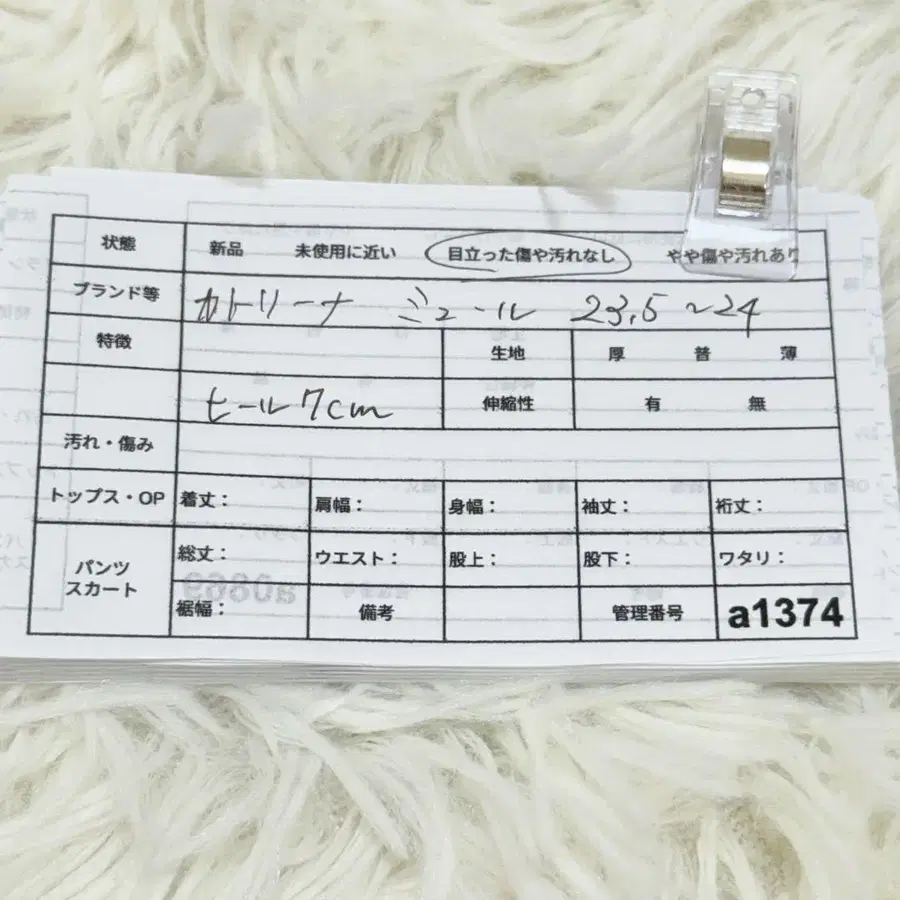 状態 新品 未使用に近い 目立った傷や汚れなし やや傷や汚れあり
ブランド等 カトリーナ ミュール 23,5 ~24
特徴 生地 厚 普 薄
ヒール7cm 伸縮性 有 無
汚れ・傷み
トップス・OP 着丈: 肩幅: 身幅: 袖丈: 裄丈:
パンツ スカート 総丈: ウエスト: 股上: 股下: ワタリ:
裾幅: 備考 管理番号 a1374